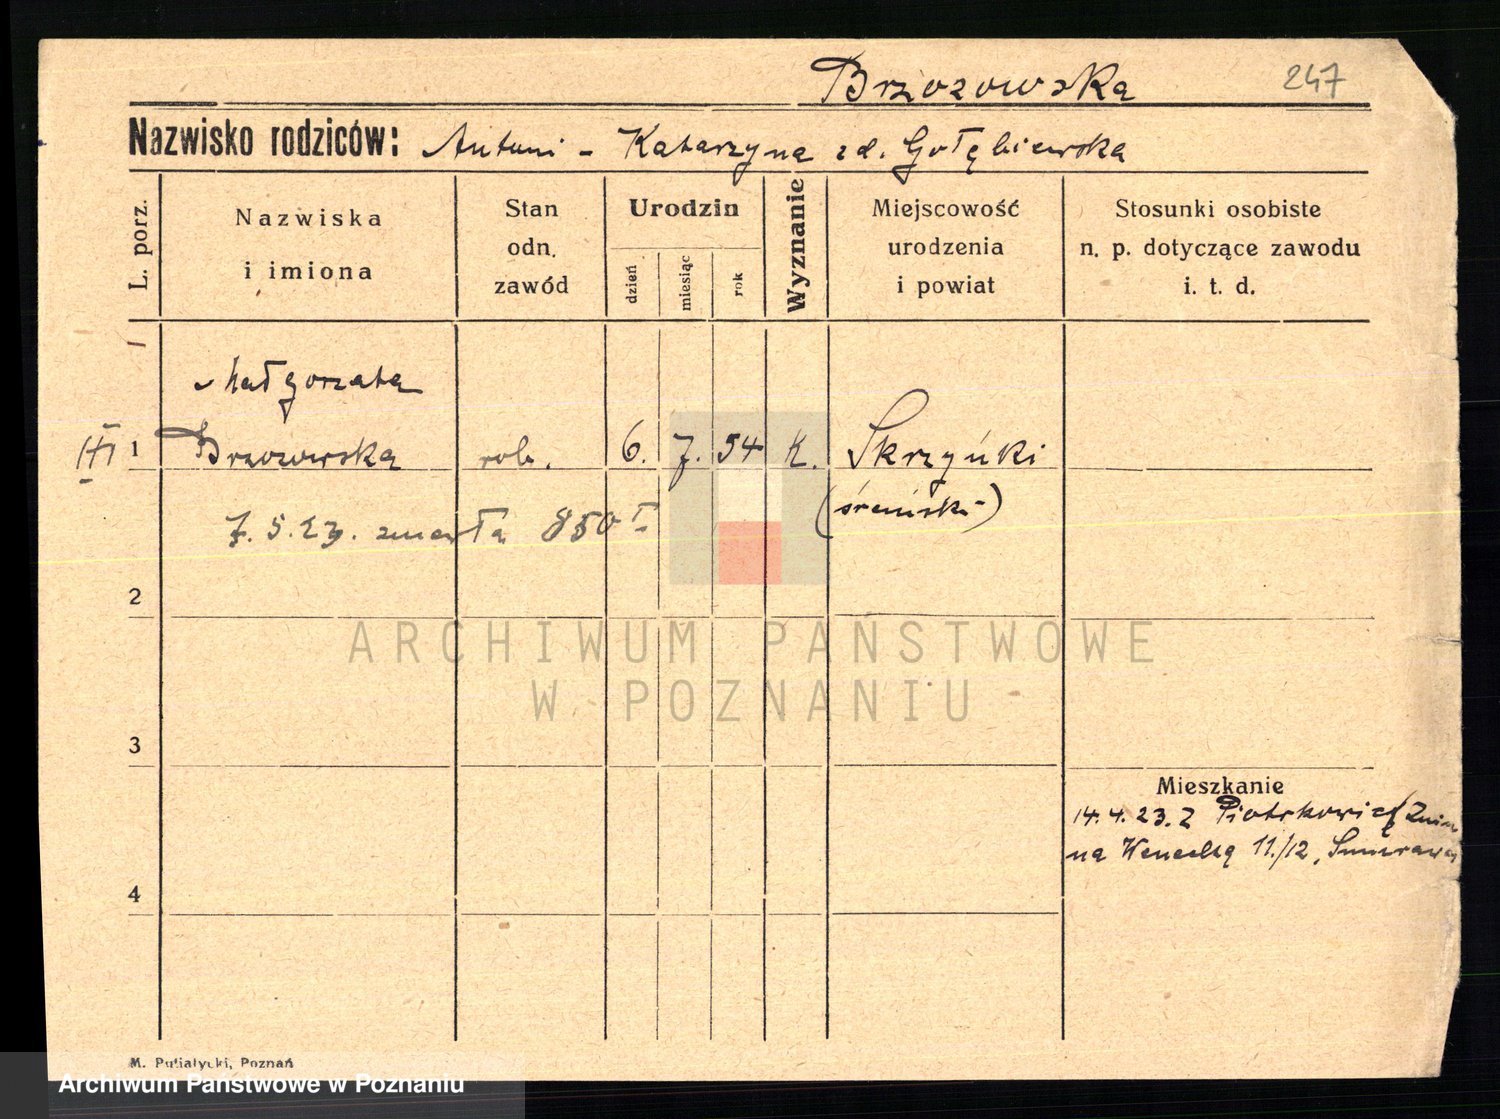 Brzozowska 247
Nazwisko rodziców: Antoni - Katarzyna zd. Gołębiewska
L. porz.
Nazwiska
i imiona
Stan
odn.
zawód
Urodzin
dzień
miesiąc
rok
Wyznanie
Miejscowość
urodzenia
i powiat
Stosunki osobiste
n. p. dotyczące zawodu
i. t. d.
Małgorzata
1 Brzozowska rob. 6. 7. 54 K. Skrzyńki
(śremski)
7. 5. 23. zmarła 850
2
ARCHIWUM PAŃSTWOWE
W POZNANIU
3
Mieszkanie
14. 4. 23. z Piotrkowic
na 11./12,
4
M. Putiatycki, Poznań
Archiwum Państwowe w Poznaniu